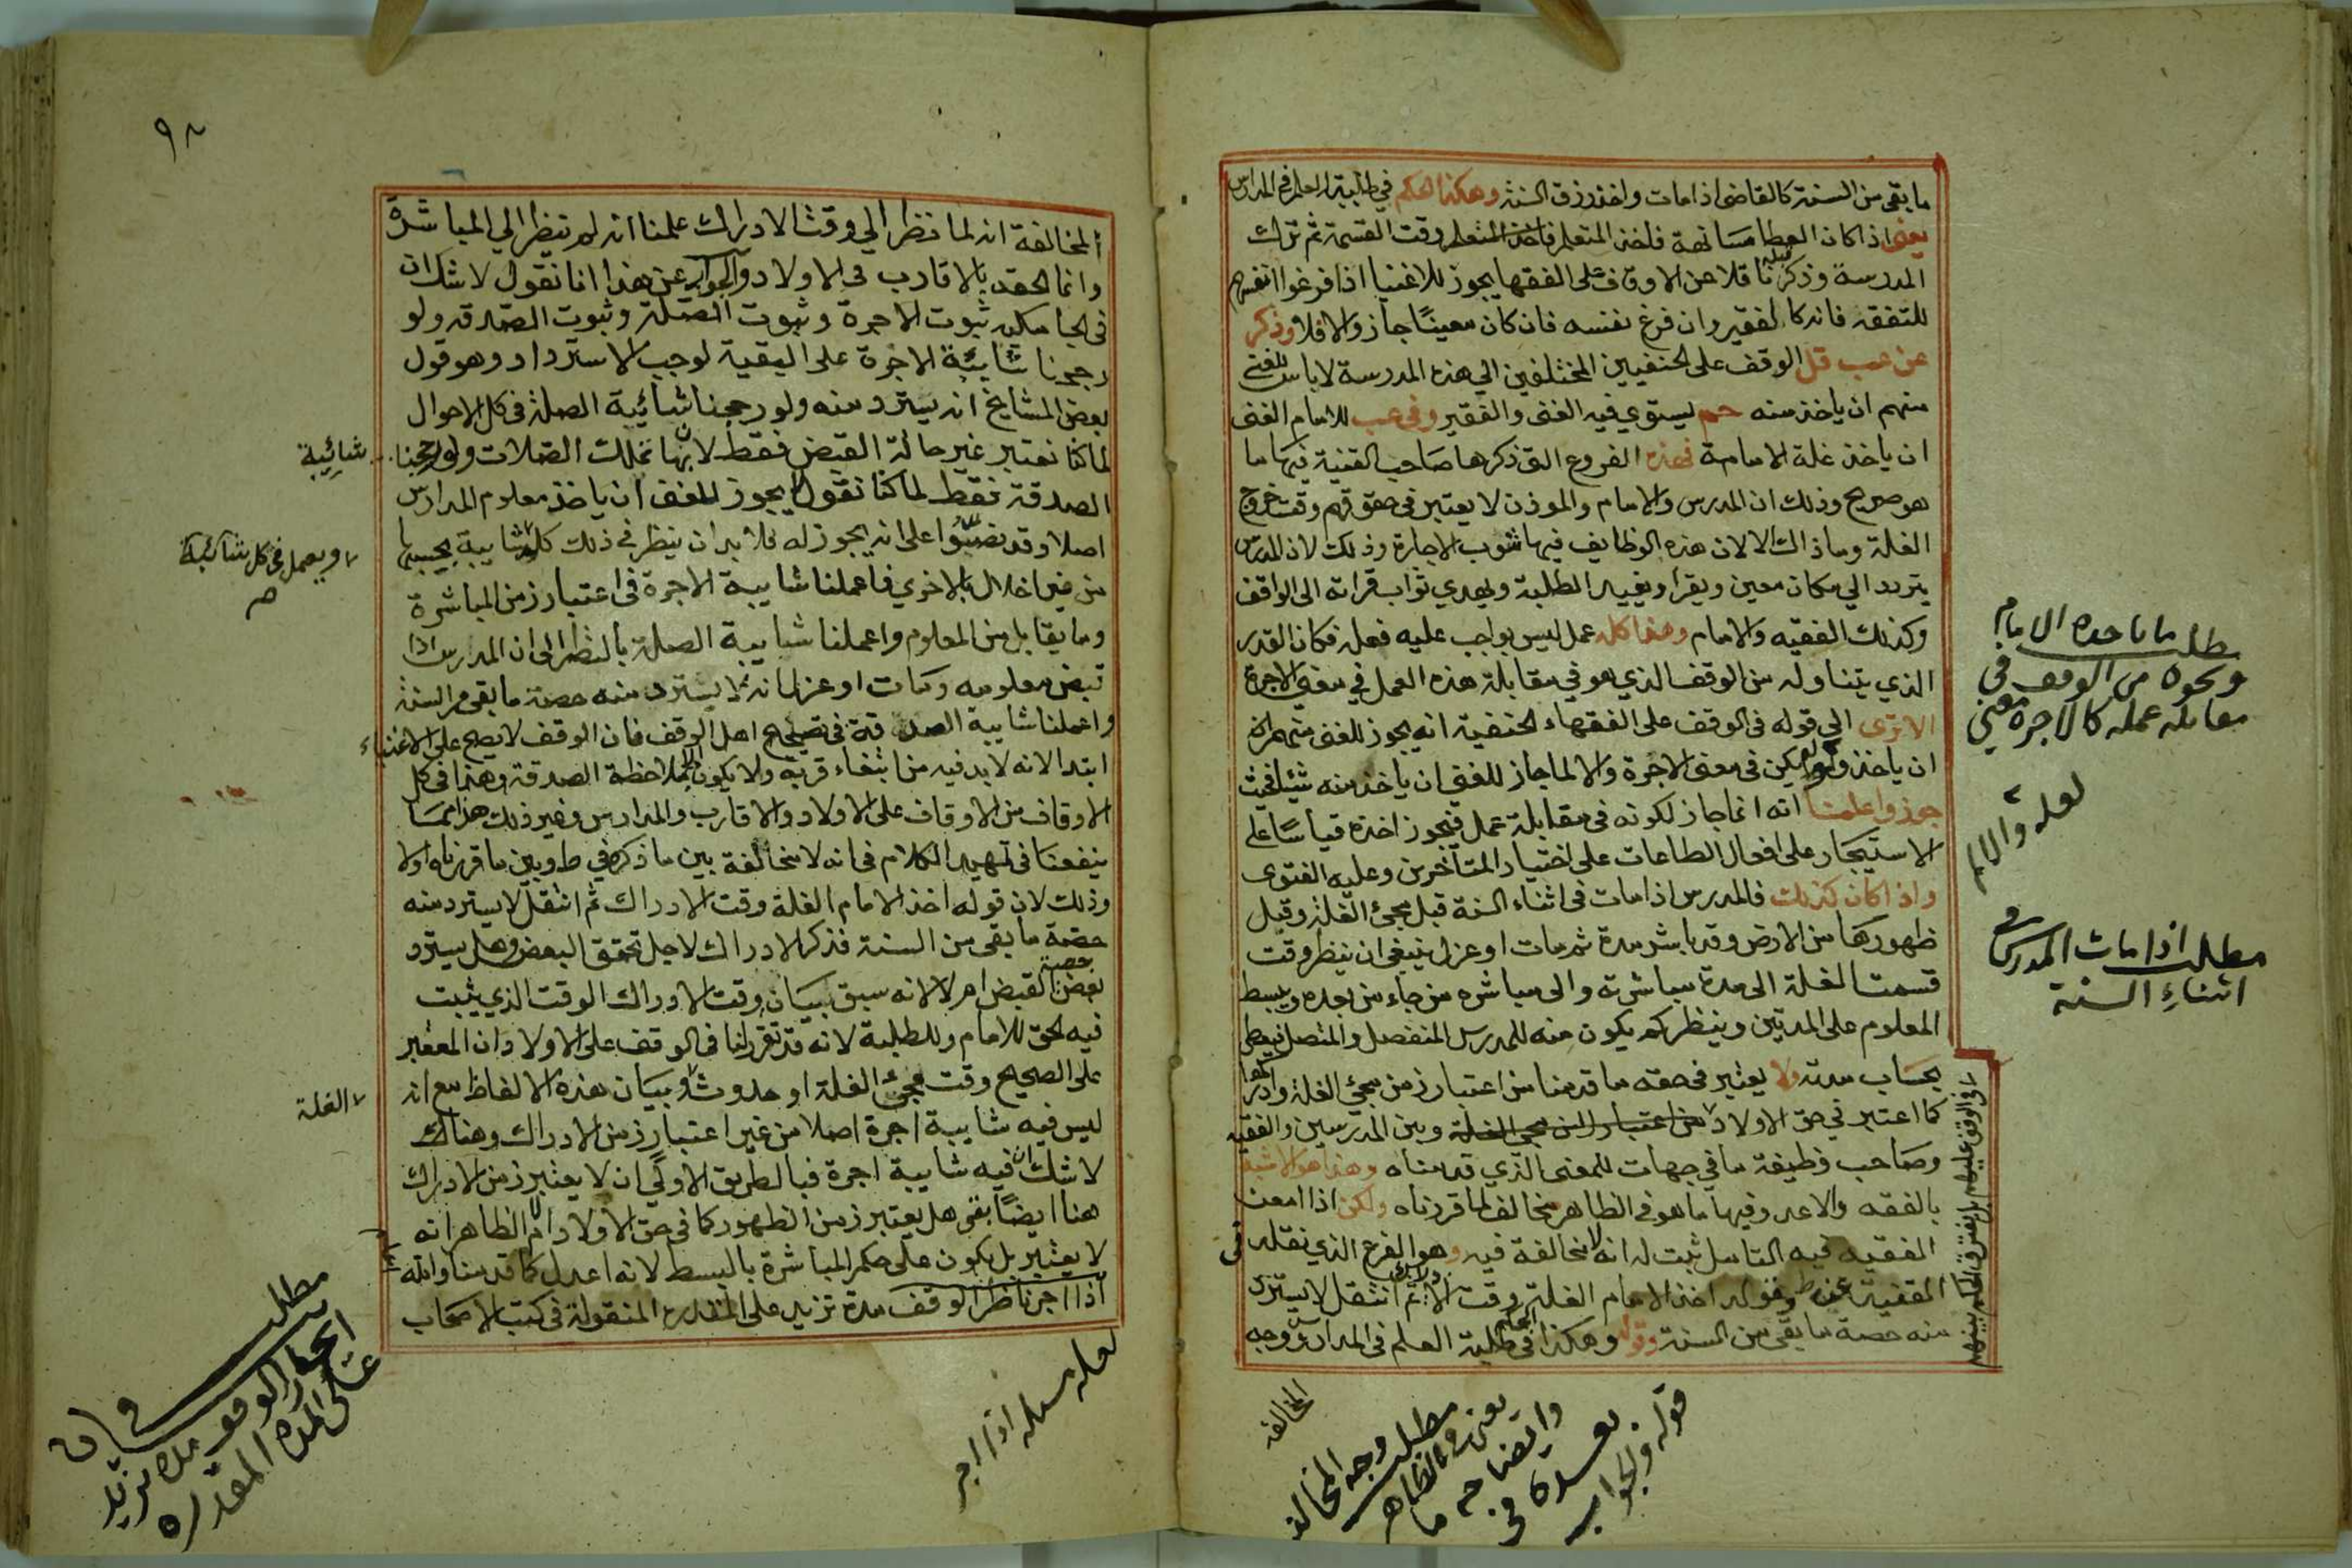 ما بقي من السنة كالقاضي اذا مات واخذ رزق السنة وهكذا الحكم في طلبة العلم في المدارس
يعني اذا كان العطا مسانهة فاخذ المتعلم وقت القسمة ثم ترك
المدرسة وذكر قبله ناقلا عن الاوقاف على الفقها يجوز للاغنيا اذا فرغوا انفسهم
للتفقه فانه كالفقير وان فرغ نفسه فان كان معينًا جاز والا فلا وذكر
عن عب قل الوقف على الحنفيين المختلفين الي هذه المدرسة لا باس للغني
منهم ان ياخذ منه حم يستوي فيه الغني والفقير وفي عب للامام الغني
ان ياخذ غلة الامامة فهذه الفروع التي ذكرها صاحب القنية فيها ما
هو صريح وذلك ان المدرس والامام والموذن لا يعتبر في حقوقهم وقت خروج
الغلة وما ذاك الا لان هذه الوظايف فيها شوب الاجارة وذلك لان المدرس
يتردد الي مكان معين ويقرا ويفيد الطلبة ويهدي ثواب قراته الى الواقف
وكذلك الفقيه والامام وهذا كله عمل ليس بواجب عليه فعله فكان القدر
الذي يتناوله من الوقف الذي هو في مقابلة هذه العمل في معني الاجرة
الا ترى الي قوله في الوقف على الفقهاء الحنفية انه يجوز للغني منهم
ان ياخذ ولو لم يكن في معنى الاجرة والا لما جاز للغني ان ياخذ منه شيئا فحيث
جوزوا علمنا انه انما جاز لكونه في مقابلة عمل فيجوز اخذه قياسًا على
الاستيجار على افعال الطاعات على اختيار المتأخرين وعليه الفتوى
واذا كان كذلك فالمدرس اذا مات في اثناء السنة قبل مجئ الغلة وقبل
ظهورها من الارض وقد باشر مدة ثم مات او عزل ينبغي ان ينظر وقت
قسمت الغلة الى مدة مباشرته والى مباشره من جاء من بعده ويبسط
المعلوم على المدتين وينظر كم يكون منه للمدرس المنفصل والمتصل فيعطى
بحساب مدته ولا يعتبر في حقه ما قدمنا من اعتبار زمن مجئي الغلة وادراكها
كما اعتبر في حق الاولاد من اعتبار زمن مجي الغلة وبين المدرسين والفقيه
وصاحب وظيفة ما في جهات للمعنى الذي قدمناه وهذا هو الاشبه
بالفقه والاعد وفيها ما هو في الظاهر مخالف لما قرزناه ولكن اذا امعن
الفقيه فيه التامل ثبت له انه لا مخالفة فيه وهو الفرع الذي نقله في
القنية عن ط وقوله اخذ الامام الغلة وقت الادراك ثم انتقل لا يسترد
منه حصة ما بقي من السنة وقوله وهكذا الحكم في طلبة العلم في المدارس ووجه
في الوقف عليهم بل يفترق الحكم بينهم
طلب ما ياخده الامام
ونحوه من الوقف في
مقابلة عمله كالاجرة معني
لعله والا لم
مطلب اذا مات المدرس في
اثناء السنة
المخالفه
مطلب وجه المخالفه
يعني في الظاهر
وايضاحه ما
بعده في
قوله والجواب
٩٨
المخالفة انه لما نظر الي وقت الادراك علمنا انه لم ينظر الي المباشرة
وانما الحقه بالاقارب في الاولاد والجواب عن هذا انا نقول لا شك ان
في الجامكيه ثبوت الاجرة وثبوت الصلة وثبوت الصدقه ولو
رجحنا شايبة الاجرة على البقية لوجب الاسترداد وهو قول
بعض المشايخ انه يسترد منه ولو رجحنا شائبة الصلة في كل الاحوال
لما كنا نعتبر غير حالة القبض فقط لانها تملك الصلات ولو رجحنا
الصدقة فقط لما كنا نقول يجوز للغني ان ياخذ معلوم المدارس
اصلا وقد نصوا على انه يجوز له فلا بد ان ينظر في ذلك كل شايبة بحسبها
من غير اخلال بالاخرى فاعملنا شايبة الاجرة في اعتبار زمن المباشرة
وما يقابل من المعلوم واعملنا شايبة الصلة بالنظر الى ان المدرس اذا
قبض معلومه ومات او عزل انه لا يسترد منه حصة ما بقي من السنة
واعملنا شايبة الصدقة في تصحيح اهل الوقف فان الوقف لا يصح على الاغنياء
ابتدا لانه لابد فيه من ابتغاء قربة ولا يكون الا بملاحظة الصدقة وهذا في كل
الاوقاف من الاوقاف على الاولاد والاقارب والمدارس وغير ذلك هذا مما
ينفعنا في تمهيد الكلام في انه لا مخالفة بين ما ذكره في ط وبين ما قرزناه اولا
وذلك لان قوله اخذ الامام الغلة وقت الادراك ثم انتقل لا يسترد منه
حصة ما بقي من السنة فذكر الادراك لاجل تحقق البعض وهل يسترد حصة
بعض القبض ام لا لانه سبق بيان وقت الادراك الوقت الذي يثبت
فيه الحق للامام وللطلبة لانه قد تقرر لنا في الوقف على الاولاد ان المعتبر
على الصحيح وقت مجئ الغلة او حدوث وبيان هذه الالفاظ مع انه
ليس فيه شايبة اجرة اصلا من غير اعتبار زمن الادراك وهناك
لا شك ان فيه شايبة اجرة فبالطريق الاولي ان لا يعتبر زمن الادراك
هنا ايضًا بقي هل يعتبر زمن الظهور كما في حق الاولاد ام لا الظاهر انه
لا يعتبر بل يكون على حكم المباشرة بالبسط لانه اعدل كما قدمنا والله اعلم
اذا اجر ناظر الوقف مدة تزيد على المقدرة المنقولة في كتب الاصحاب
شائبة
ويعمل في كل شائبة
صح
الغلة
مطلب في ان
ايجار الوقف مده تزيد
على المده المقدره
لعله مسله اذا اجر